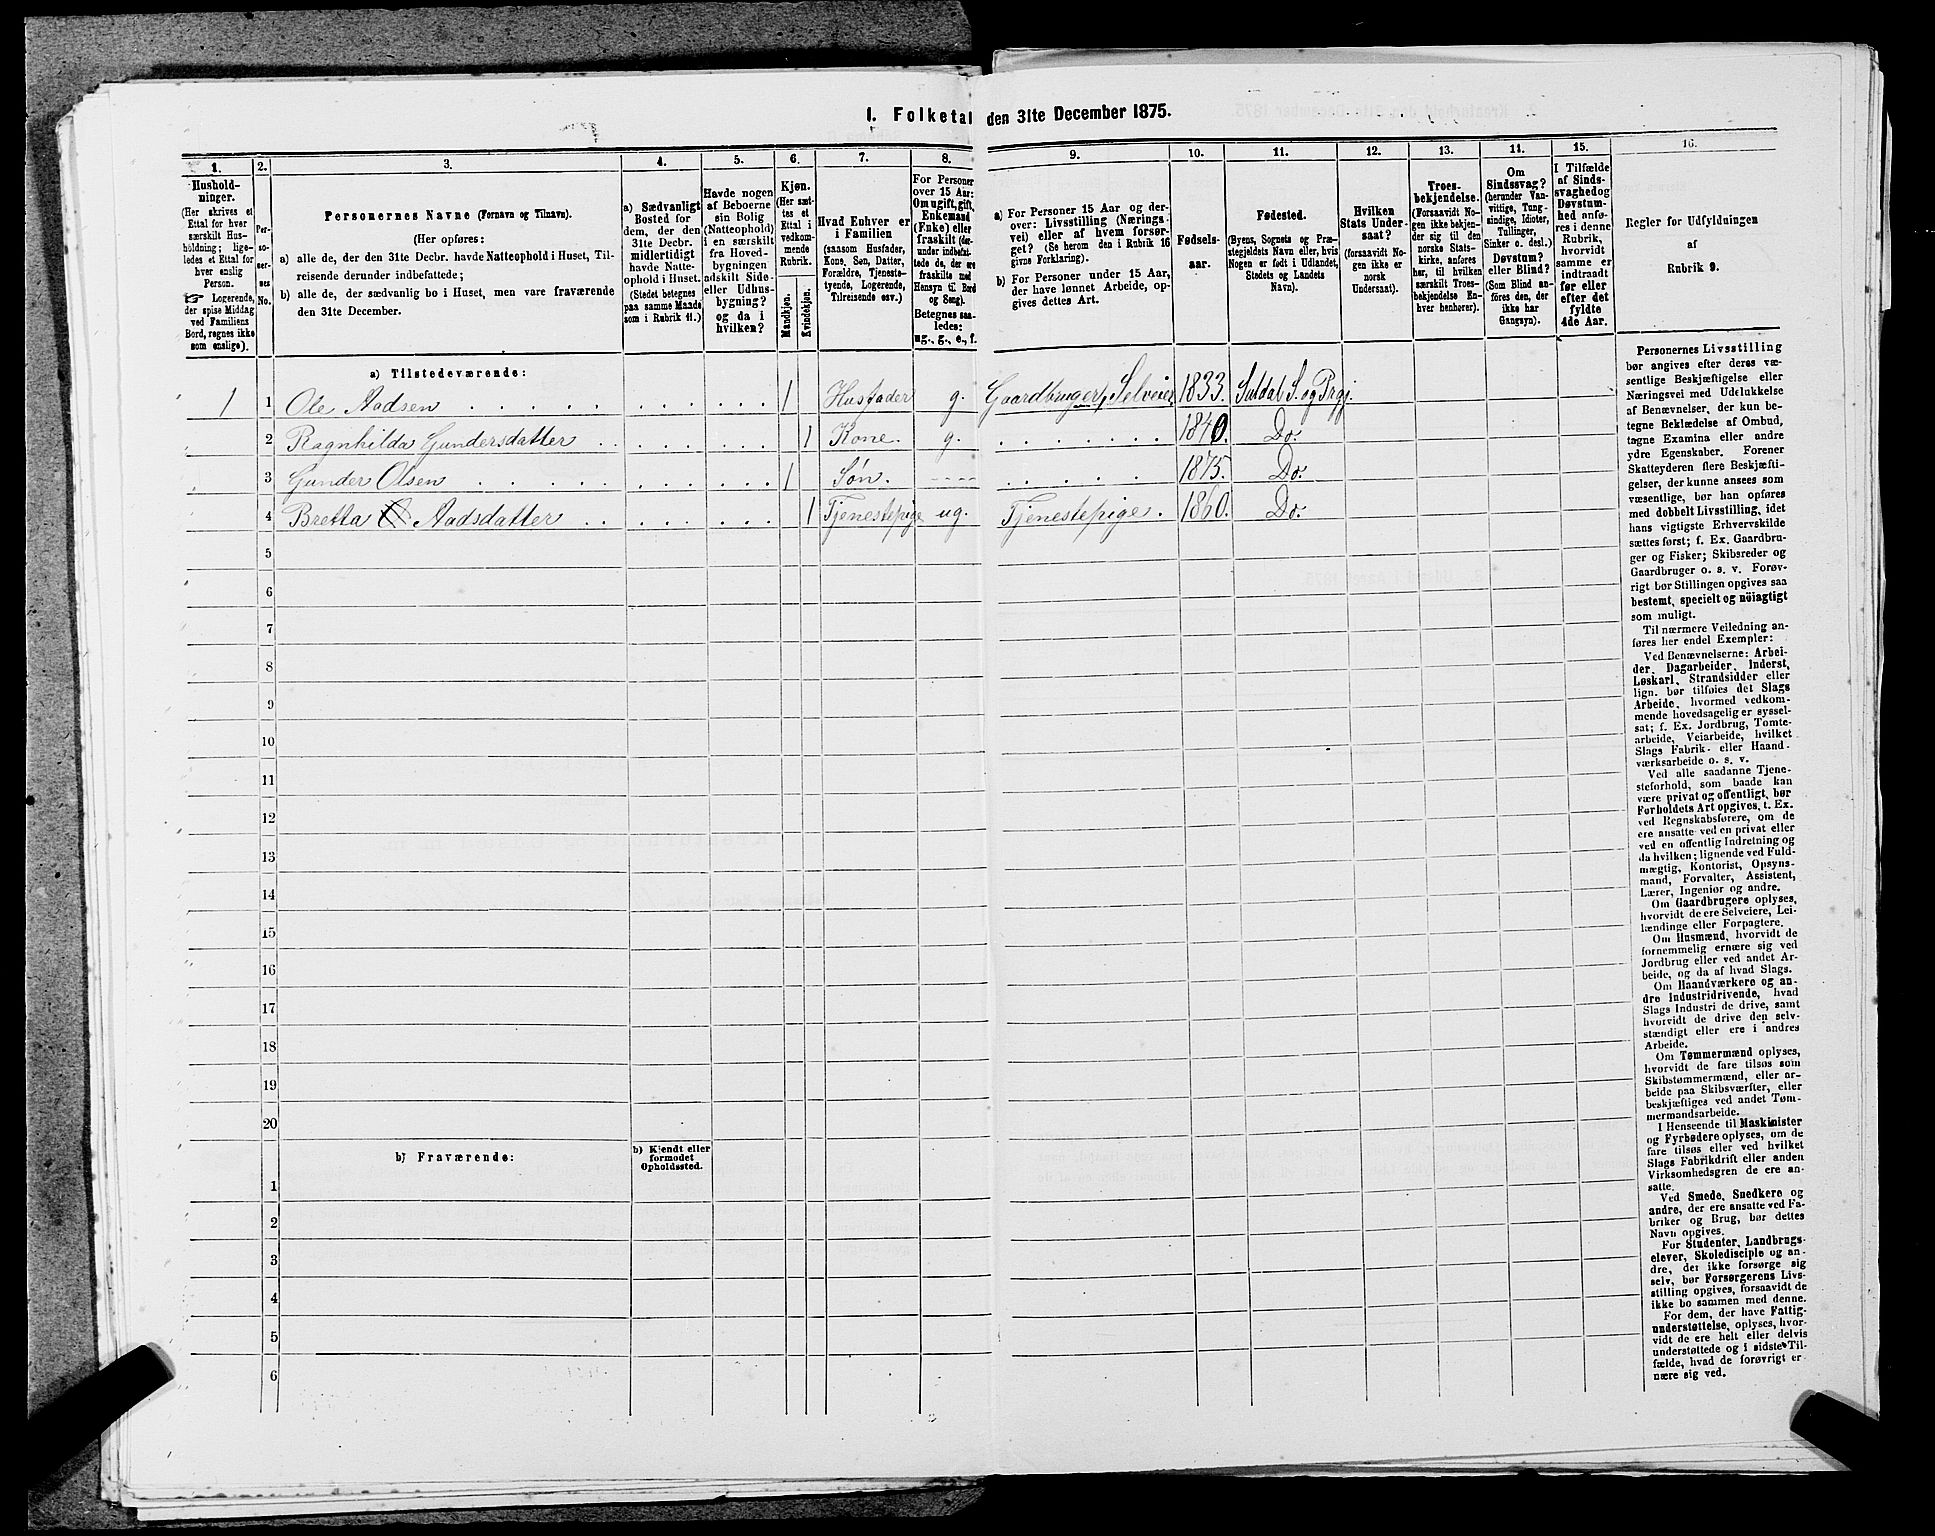 1. Folketal den 31te December 1875.
1.
2.
3.
4.
5.
6.
7.
8.
9.
10.
11.
12.
13.
14.
15.
16.
Hushold-
ninger.
(Her skrives et
Ettal for hver
særskilt Hus-
holdning; lige-
ledes et Ettal for
hver enslig
Person.
☞ Logerende,
der spise Middag
ved Familiens
Bord, regnes ikke
som enslige).
Per-
so-
ner-
nes
No.
Personernes Navne (Fornavn og Tilnavn).
(Her opføres:
a) alle de, der den 31te Decbr. havde Natteophold i Huset, Til-
reisende derunder indbefattede;
b) alle de, der sædvanlig bo i Huset, men vare fraværende
den 31te December.
a) Sædvanligt
Bosted for
dem, der den
31te Decbr.
midlertidigt
havde Natte-
ophold i Huset.
(Stedet betegnes
paa samme Maade
som i Rubrik 11.)
Havde nogen
af Beboerne
sin Bolig
(Natteophold)
i en særskilt
fra Hoved-
bygningen
adskilt Side-
eller Udhus-
bygning?
og da i
hvilken?
Kjøn.
(Her sæt-
tes et
Ettal i
vedkom-
mende
Rubrik.
Mandkjøn.
Kvindekjøn.
Hvad Enhver er
i Familien
(saasom Husfader,
Kone, Søn, Datter,
Forældre, Tjeneste-
tyende, Logerende,
Tilreisende osv.)
For Personer
over 15 Aar:
Om ugift, gift,
Enkemand
(Enke) eller
fraskilt (der-
under indbefat-
tede de, der ere
fraskilte med
Hensyn til Bord
og Seng).
Betegnes saa-
ledes:
ug., g., e., f.
a) For Personer 15 Aar og der-
over: Livsstilling (Nærings-
vei) eller af hvem forsør-
get? (Se herom den i Rubrik 16
givne Forklaring).
b) For Personer under 15 Aar,
der have lønnet Arbeide, op-
gives dettes Art.
Fødsels-
aar.
Fødested.
(Byens, Sognets og Præ-
stegjeldets Navn eller, hvis
Nogen er født i Udlandet,
Stedets og Landets
Navn).
Hvilken
Stats Under-
saat?
(forsaavidt No-
gen ikke er
norsk
Undersaat).
Troes-
bekjendelse.
(Forsaavidt No-
gen ikke bekjen-
der sig til den
norske Stats-
kirke, anføres
her, til hvilken
særskilt Troes-
bekjendelse En-
hver henhører).
Om
Sindssvag?
(herunder Van-
vittige, Tung-
sindige, Idioter,
Tullinger,
Sinker o. desl.)
Døvstum?
eller Blind?
(Som Blind an-
føres den, der
ikke har
Gangsyn).
I Tilfælde
af Sinds-
svaghed og
Døvstum-
hed anfø-
res i denne
Rubrik,
hvorvidt
samme er
indtraadt
før eller
efter det
fyldte
4de Aar.
Regler for Udfyldningen
af
Rubrik 9.
a) Tilstedeværende:
1 1 Ole Aadsen 1 Husfader g. Gaardbruger, Selveier 1833. Suldal S. og Prgj.
2 Ragnhilda Gundersdatter 1 Kone. g. 1840. Do.
3 Gunder Olsen 1 Søn. 1875. Do.
4 Bretta Aadsdatter 1 Tjenestepige ug. Tjenestepige. 1860. Do.
5
6
7
8
9
10
11
12
13
14
15
16
17
18
19
20
b) Fraværende:
b) Kjendt eller
formodet
Opholdssted.
1
2
3
4
5
6
Personernes Livsstilling
bør angives efter deres væ-
sentlige Beskjæftigelse eller
Næringsvei med Udelukkelse
af Benævnelser, der kun be-
tegne Beklædelse af Ombud,
tagne Examina eller andre
ydre Egenskaber. Forener
Skatteyderen flere Beskjæfti-
gelser, der kunne ansees som
væsentlige, bør han opføres
med dobbelt Livsstilling, idet
hans vigtigste Erhvervskilde
sættes først; f. Ex. Gaardbru-
ger og Fisker; Skibsreder og
Gaardbruger o. s. v. Forøv-
rigt bør Stillingen opgives saa
bestemt, specielt og nöiagtigt
som muligt.
Til nærmere Veiledning an-
føres her endel Exempler:
Ved Benævnelserne: Arbei-
der, Dagarbeider, Inderst,
Løskarl, Strandsidder eller
lign. bør tilføies det Slags
Arbeide, hvormed vedkom-
mende hovedsagelig er syssel-
sat; f. Ex. Jordbrug, Tomte-
arbeide, Veiarbeide, hvilket
Slags Fabrik- eller Haand-
værksarbeide o. s. v.
Ved alle saadanne Tjene-
steforhold, som baade kan
være privat og offentligt, bør
Forholdets Art opgives, t. Ex.
ved Regnskabsførere, om de
ere ansatte ved en privat eller
ved en offentlig Indretning og
da hvilken; lignende ved Fuld-
mægtig, Kontorist, Opsyns-
mand, Forvalter, Assistent,
Lærer, Ingeniør og andre.
Om Gaardbrugere oplyses,
hvorvidt de ere Selveiere, Lei-
lændinge eller Forpagtere.
Om Husmænd, hvorvidt de
fornemmelig ernære sig ved
Jordbrug eller ved andet Ar-
beide, og da af hvad Slags.
Om Haandværkere og an-
dre Industridrivende, hvad
Slags Industri de drive, samt
hvorvidt de drive den selv-
stændigt eller ere i andres
Arbeide.
Om Tømmermænd oplyses,
hvorvidt de fare tilsøs som
Skibstømmermænd, eller ar-
beide paa Skibsværfter, eller
beskjæftiges ved andet Tøm-
mermandsarbeide.
I Henseende til Maskinister
og Fyrbødere oplyses, om de
fare tilsøs eller ved hvilket
Slags Fabrikdrift eller anden
Virksomhedsgren de ere an-
satte.
Ved Smede, Snedkere og
andre, der ere ansatte ved Fa-
briker og Brug, bør dettes
Navn opgives.
For Studenter, Landbrugs-
elever, Skoledisciple og an-
dre, der ikke forsørge sig
selv, bør Forsørgerens Livs-
stilling opgives, forsaavidt de
ikke bo sammen med denne.
For dem, der have Fattig-
understøttelse, oplyses, hvor-
vidt de ere helt eller delvis
understøttede og i sidste Til-
fælde, hvad de forøvrigt er
nære sig ved.